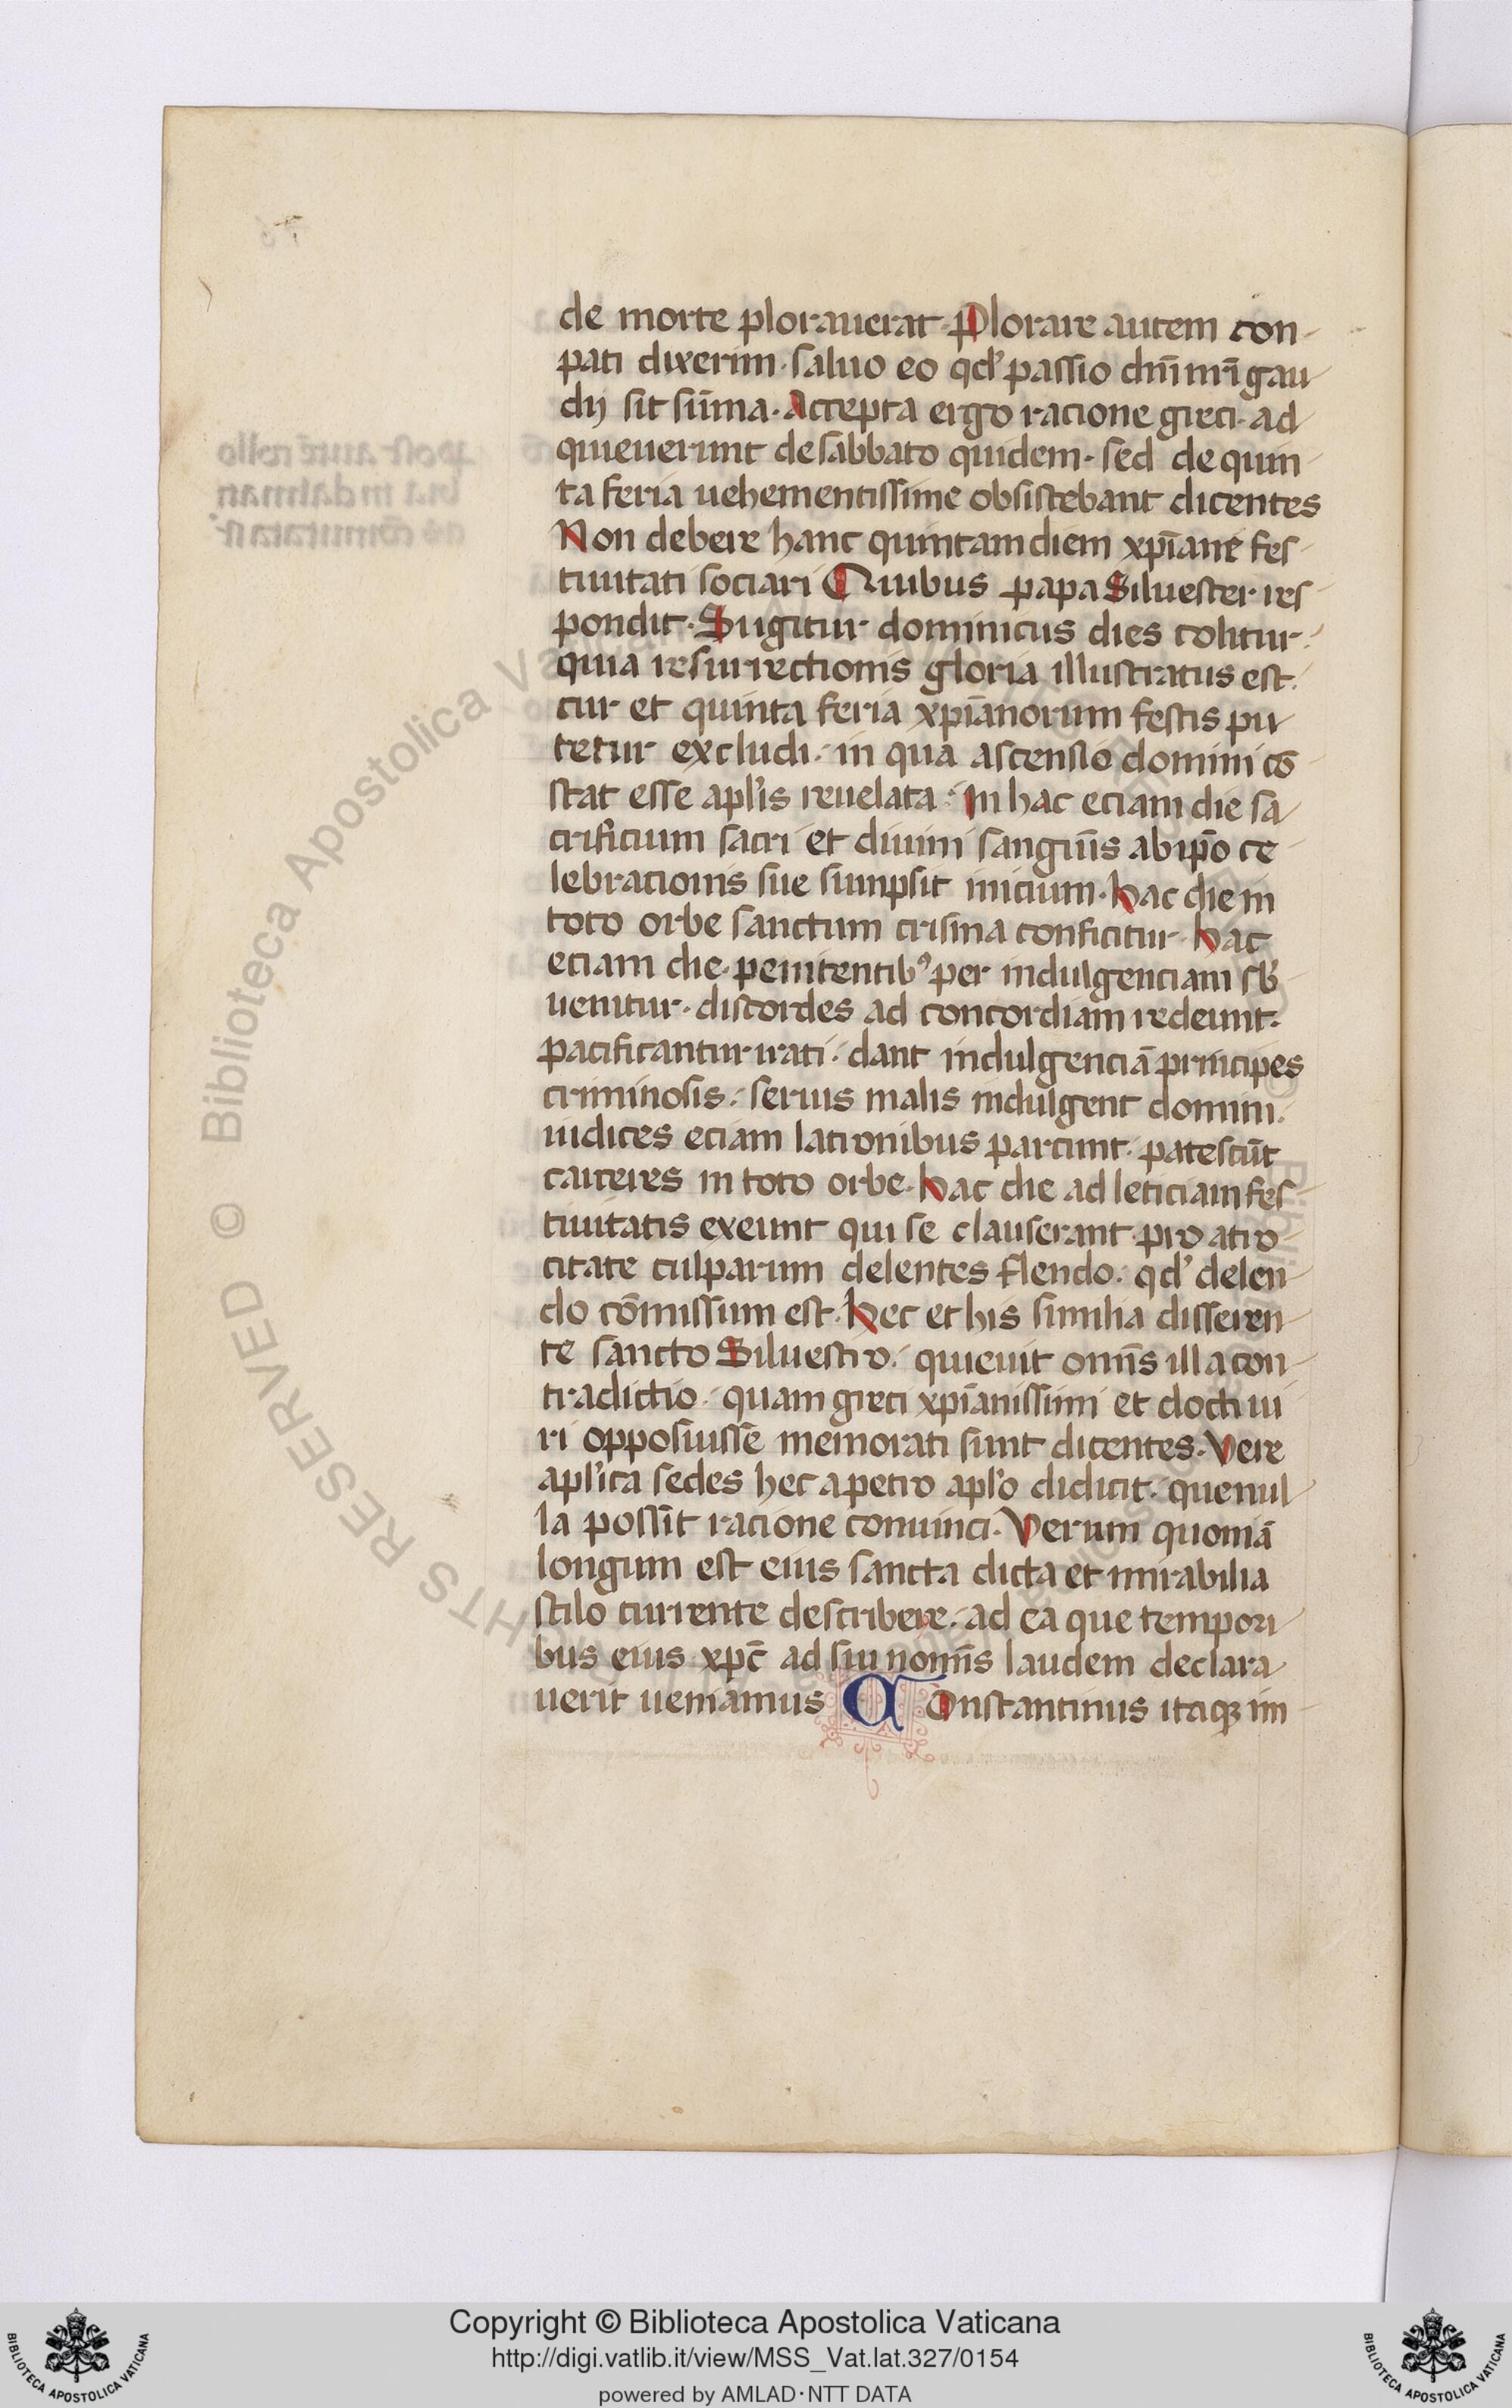 de morte plorauerat. Plorare autem con-
pati dixerim. saluo eo qd' passio dnī nrī gau-
dij sit sūma. Accepta ergo racione greci. ad-
quieuerunt de sabbato quidem. sed de quin-
ta feria uehementissime obsistebant dicentes
Non debere hanc quintam diem xpīane fes-
tiuitati sociari Quibus papa Siluester res-
pondit. Si igitur dominicus dies colitur.
quia resurrectionis gloria illustratus est.
cur et quinta feria xpīanorum festis pu-
tetur excludi. in qua ascensio domini cō-
stat esse apl'is reuelata. In hac eciam die sa-
crificium sacri et diuini sanguīs ab ip̄o ce-
lebracionis sue sumpsit inicium. hac die in
toto orbe sanctum crisma conficitur. hac
eciam die. penitentibꝰ per indulgenciam sb'-
uenitur. discordes ad concordiam redeunt.
pacificantur irati. dant indulgenciā principes
criminosis. seruis malis indulgent domini.
iudices eciam latronibus parcunt. patescūt
carceres in toto orbe. hac die ad leticiam fes-
tiuitatis exeunt qui se clauserant. pro atro-
citate culparum delentes flendo. qd' delen-
do cōmissum est. hec et his similia disseren-
te sancto Siluestro. quieuit omīs illa con-
tradictio. quam greci xpīanissimi et docti ui-
ri opposuisse memorati sunt dicentes. Vere
apl'ica sedes hec a petro apl'o didicit. que nul-
la possīt racione conuinci. Verum quoniā
longum est eius sancta dicta et mirabilia
stilo currente describere. ad ea que tempori-
bus eius xpc̄ ad sui nomīs laudem declara-
uerit ueniamus C Onstantinus itaqꝫ im-
Copyright © Biblioteca Apostolica Vaticana
http://digi.vatlib.it/view/MSS_Vat.lat.327/0154
powered by AMLAD·NTT DATA